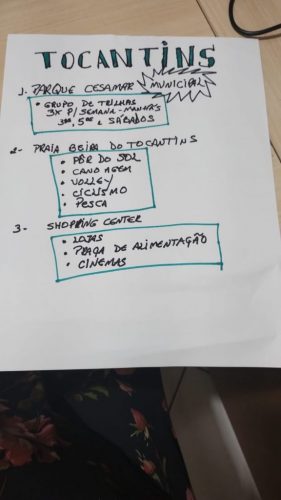 TOCANTINS
1. PARQUE CESAMAR MUNICIPAL
• GRUPO DE TRILHAS
3X P/ SEMANA - MANHÃS
3ªS, 5ªS E SÁBADOS
2- PRAIA BEIRA DO TOCANTINS
• PÔR DO SOL
• CANOAGEM
• VOLLEY
• CICLISMO
• PESCA
3- SHOPPING CENTER
• LOJAS
• PRAÇA DE ALIMENTAÇÃO
• CINEMAS